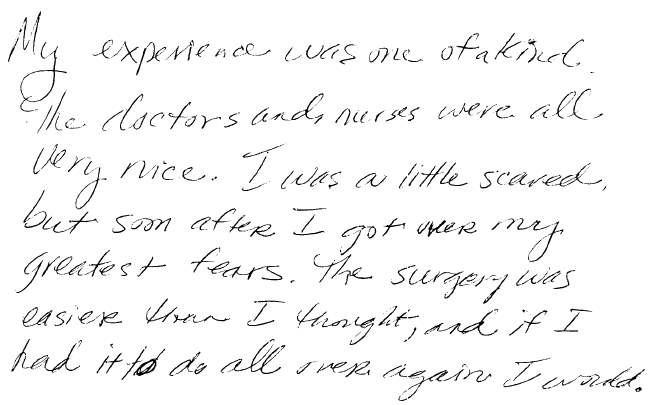 My experience was one of a kind.
The doctors and nurses were all
very nice. I was a little scared,
but soon after I got over my
greatest fears. The surgery was
easier than I thought, and if I
had it to do all over again I would.